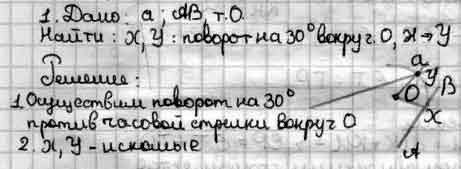 1. Дано: a; AB, т.О.
Найти: X, Y: поворот на 30° вокруг т. О, X → Y
Решение:
1. Осуществим поворот на 30°
против часовой стрелки вокруг О
2. X, Y - искомые
a
Y
O
B
X
A